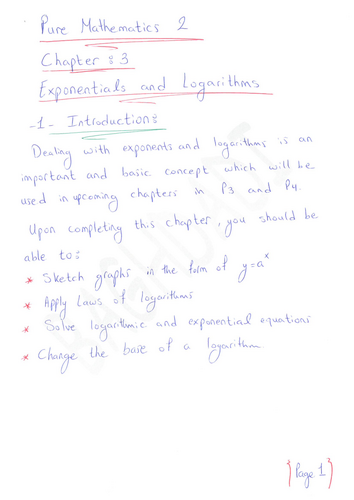 Pure Mathematics 2
Chapter : 3
Exponentials and Logarithms
-1- Introduction:
Dealing with exponents and logarithms is an
important and basic concept which will be
used in upcoming chapters in P3 and P4.
Upon completing this chapter, you should be
able to:
* Sketch graphs in the form of y=aˣ
* Apply Laws of logarithms
* Solve logarithmic and exponential equations
* Change the base of a logarithm
{Page 1}